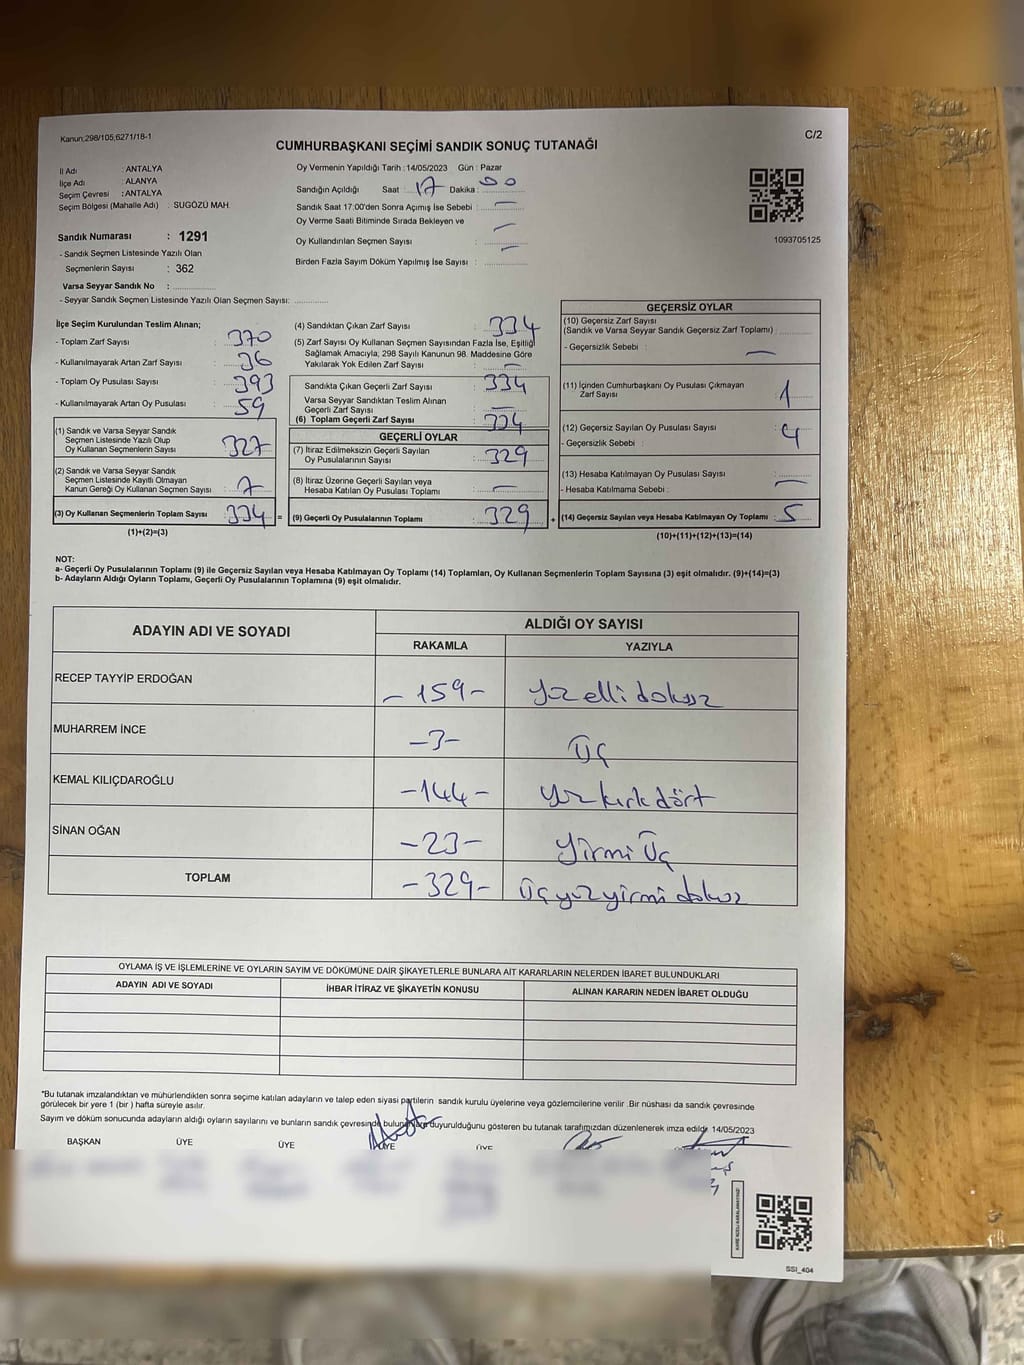 Kanun;298/105,6271/18-1
C/2
CUMHURBAŞKANI SEÇİMİ SANDIK SONUÇ TUTANAĞI
İl Adı : ANTALYA
İlçe Adı : ALANYA
Seçim Çevresi : ANTALYA
Seçim Bölgesi (Mahalle Adı) : SUGÖZÜ MAH.
Sandık Numarası : 1291
- Sandık Seçmen Listesinde Yazılı Olan
Seçmenlerin Sayısı : 362
Varsa Seyyar Sandık No :
- Seyyar Sandık Seçmen Listesinde Yazılı Olan Seçmen Sayısı:
Oy Vermenin Yapıldığı Tarih :14/05/2023 Gün : Pazar
Sandığın Açıldığı Saat : 17 Dakika : 00
Sandık Saat 17:00'den Sonra Açımış İse Sebebi : —
Oy Verme Saati Bitiminde Sırada Bekleyen ve
Oy Kullandırılan Seçmen Sayısı : —
Birden Fazla Sayım Döküm Yapılmış İse Sayısı : —
1093705125
İlçe Seçim Kurulundan Teslim Alınan;
- Toplam Zarf Sayısı : 370
- Kullanılmayarak Artan Zarf Sayısı : 36
- Toplam Oy Pusulası Sayısı : 393
- Kullanılmayarak Artan Oy Pusulası : 59
(1) Sandık ve Varsa Seyyar Sandık
Seçmen Listesinde Yazılı Olup
Oy Kullanan Seçmenlerin Sayısı : 327
(2) Sandık ve Varsa Seyyar Sandık
Seçmen Listesinde Kayıtlı Olmayan
Kanun Gereği Oy Kullanan Seçmen Sayısı : 7
(3) Oy Kullanan Seçmenlerin Toplam Sayısı : 334
(1)+(2)=(3)
(4) Sandıktan Çıkan Zarf Sayısı : 334
(5) Zarf Sayısı Oy Kullanan Seçmen Sayısından Fazla İse, Eşitliği
Sağlamak Amacıyla, 298 Sayılı Kanunun 98. Maddesine Göre
Yakılarak Yok Edilen Zarf Sayısı : —
Sandıkta Çıkan Geçerli Zarf Sayısı : 334
Varsa Seyyar Sandıktan Teslim Alınan
Geçerli Zarf Sayısı : —
(6) Toplam Geçerli Zarf Sayısı : 334
GEÇERLİ OYLAR
(7) İtiraz Edilmeksizin Geçerli Sayılan
Oy Pusulalarının Sayısı : 329
(8) İtiraz Üzerine Geçerli Sayılan veya
Hesaba Katılan Oy Pusulası Toplamı : —
= (9) Geçerli Oy Pusulalarının Toplamı : 329
GEÇERSİZ OYLAR
(10) Geçersiz Zarf Sayısı
(Sandık ve Varsa Seyyar Sandık Geçersiz Zarf Toplamı) :
- Geçersizlik Sebebi : —
(11) İçinden Cumhurbaşkanı Oy Pusulası Çıkmayan
Zarf Sayısı : 1
(12) Geçersiz Sayılan Oy Pusulası Sayısı : 4
- Geçersizlik Sebebi :
(13) Hesaba Katılmayan Oy Pusulası Sayısı : —
- Hesaba Katılmama Sebebi :
+ (14) Geçersiz Sayılan veya Hesaba Katılmayan Oy Toplamı : 5
(10)+(11)+(12)+(13)=(14)
NOT:
a- Geçerli Oy Pusulalarının Toplamı (9) ile Geçersiz Sayılan veya Hesaba Katılmayan Oy Toplamı (14) Toplamları, Oy Kullanan Seçmenlerin Toplam Sayısına (3) eşit olmalıdır. (9)+(14)=(3)
b- Adayların Aldığı Oyların Toplamı, Geçerli Oy Pusulalarının Toplamına (9) eşit olmalıdır.
ADAYIN ADI VE SOYADI
ALDIĞI OY SAYISI
RAKAMLA YAZIYLA
RECEP TAYYİP ERDOĞAN -159- yüz elli dokuz
MUHARREM İNCE -3- üç
KEMAL KILIÇDAROĞLU -144- yüz kırk dört
SİNAN OĞAN -23- Yirmi Üç
TOPLAM -329- Üç yüz yirmi dokuz
OYLAMA İŞ VE İŞLEMLERİNE VE OYLARIN SAYIM VE DÖKÜMÜNE DAİR ŞİKAYETLERLE BUNLARA AİT KARARLARIN NELERDEN İBARET BULUNDUKLARI
ADAYIN ADI VE SOYADI İHBAR İTİRAZ VE ŞİKAYETİN KONUSU ALINAN KARARIN NEDEN İBARET OLDUĞU
*Bu tutanak imzalandıktan ve mühürlendikten sonra seçime katılan adayların ve talep eden siyasi partilerin sandık kurulu üyelerine veya gözlemcilerine verilir .Bir nüshası da sandık çevresinde
görülecek bir yere 1 (bir ) hafta süreyle asılır.
Sayım ve döküm sonucunda adayların aldığı oyların sayılarını ve bunların sandık çevresinde duyurulduğunu gösteren bu tutanak tarafımızdan düzenlenerek imza edildi. 14/05/2023
BAŞKAN ÜYE ÜYE ÜYE ÜYE
SSI_404